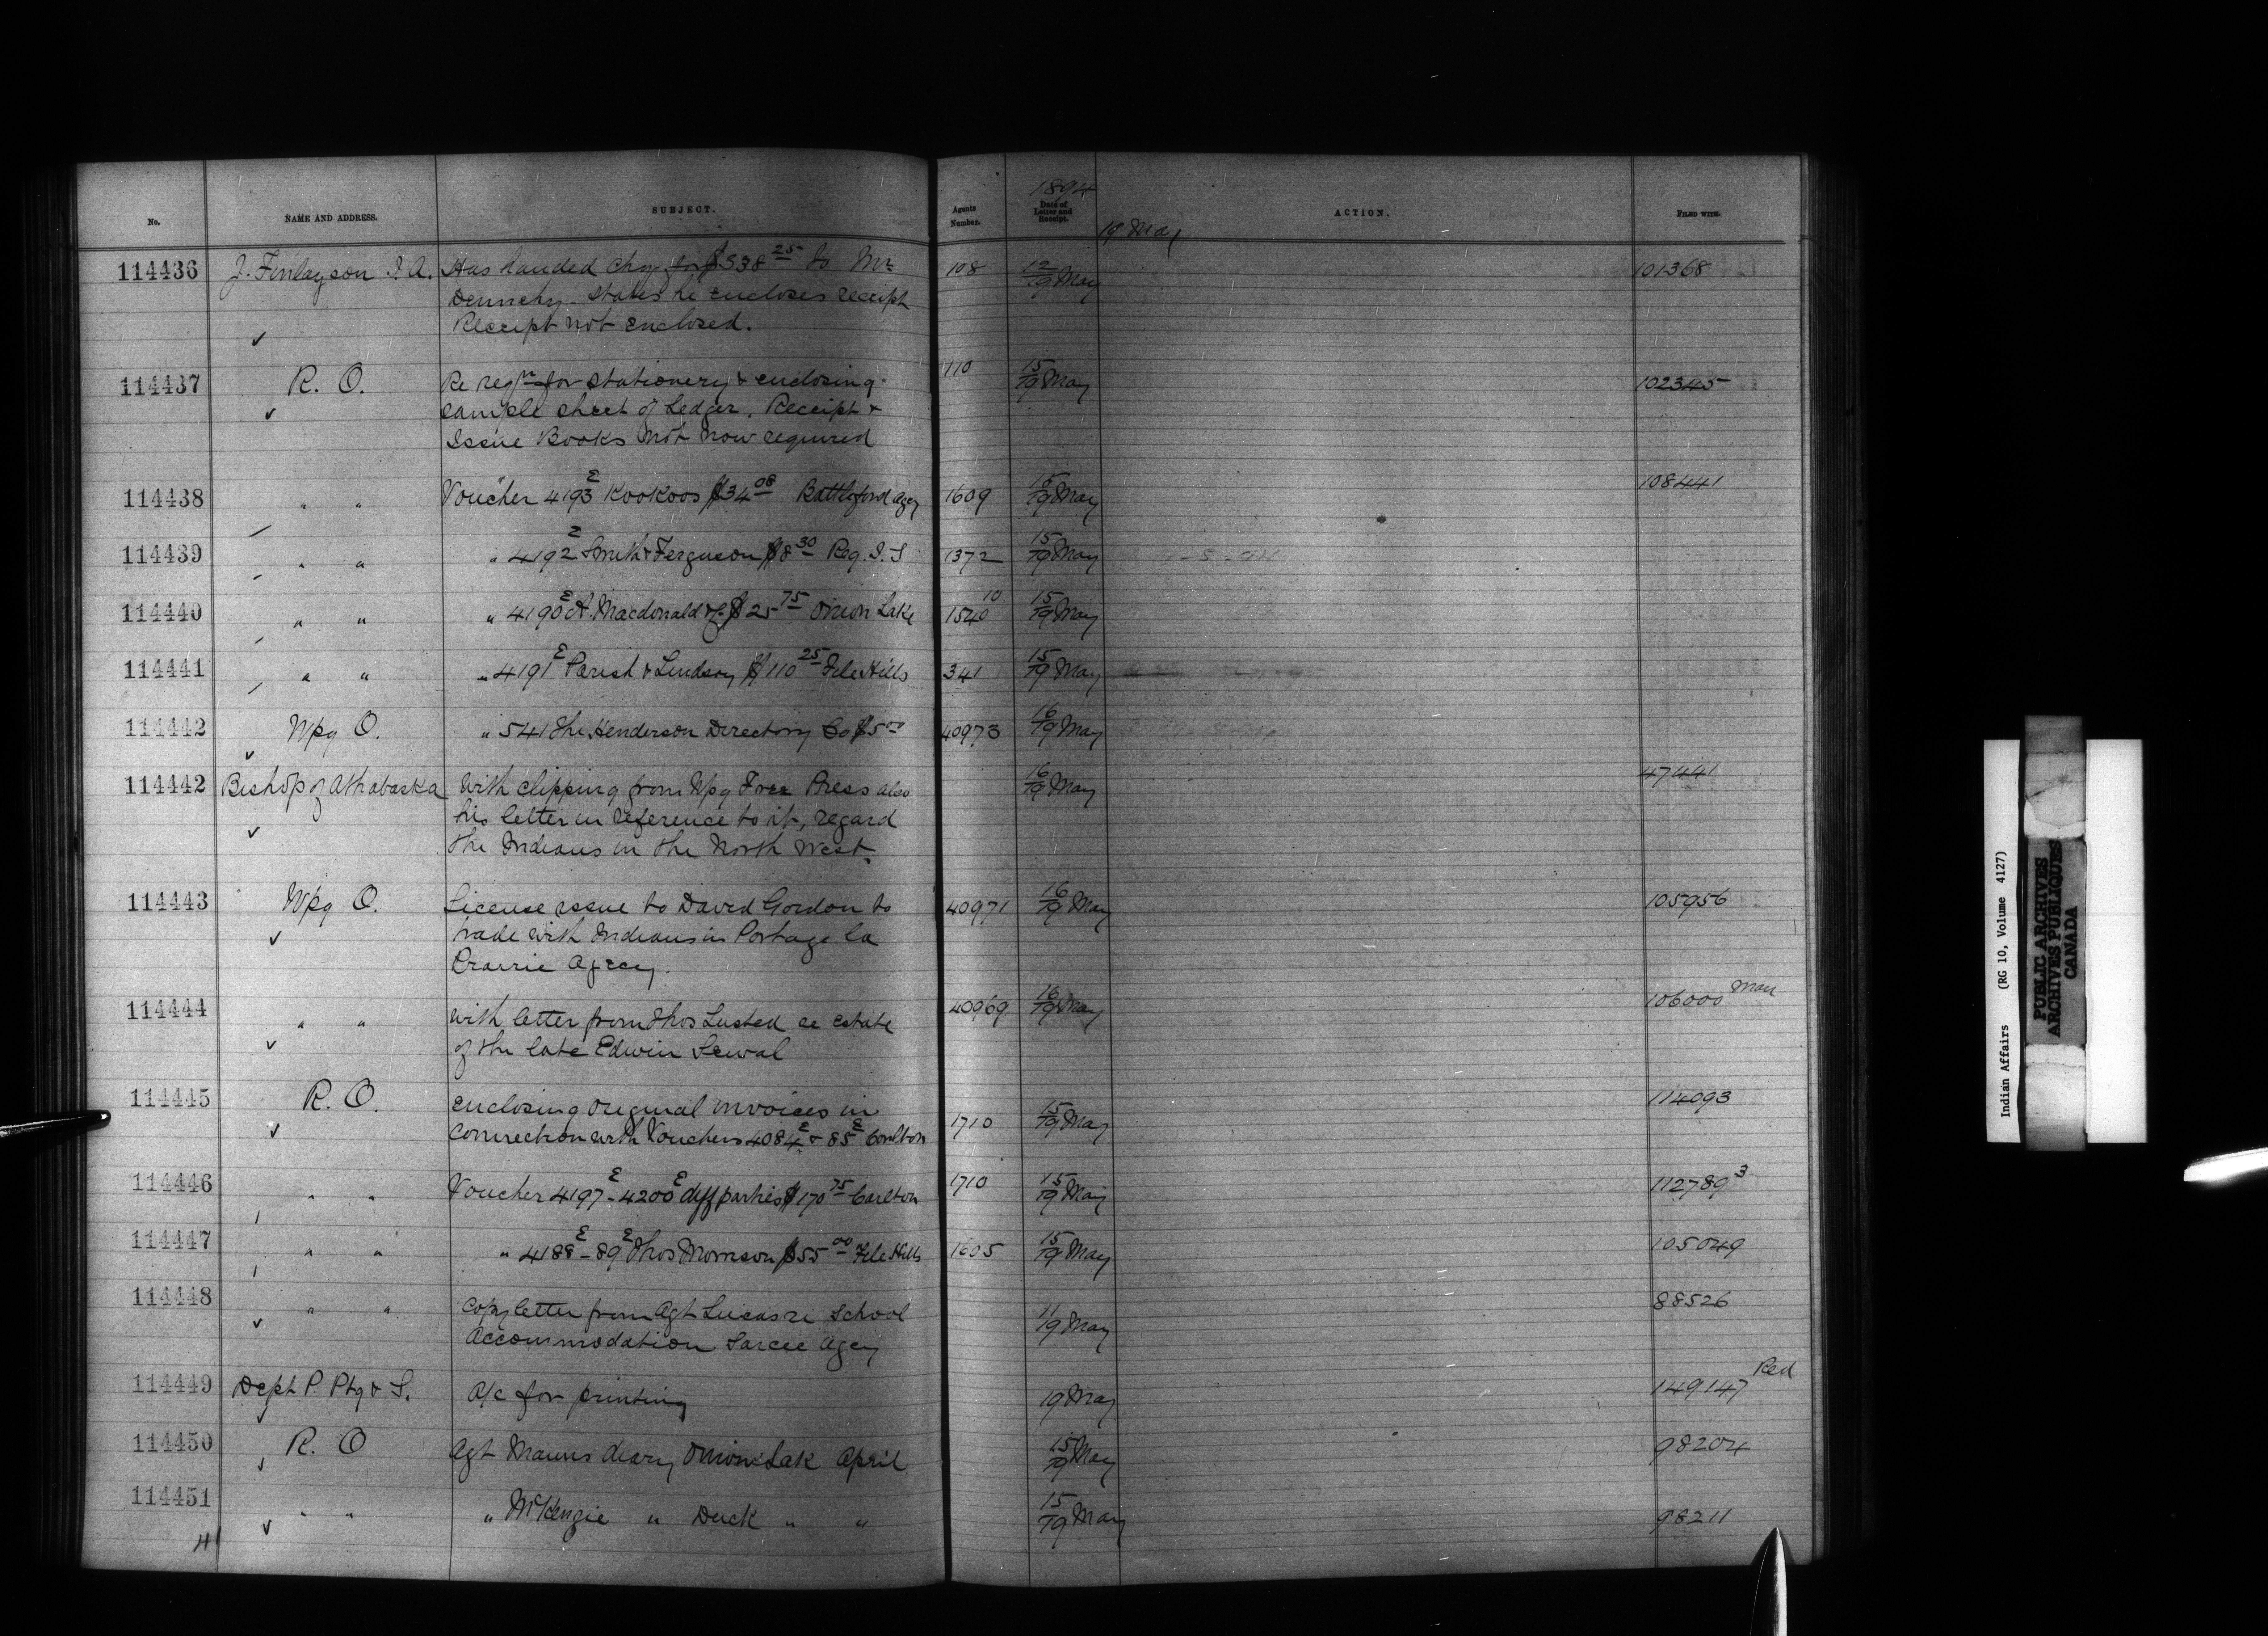 No.
NAME AND ADDRESS.
SUBJECT.
Agents
Number.
1894
Date of
Letter and
Receipt.
19 May
ACTION.
FILED WITH.
114436 J. Finlayson I. A. Has handed chq for $338 25 to Mr 108 12/19 May 101368
Dennehy - states he encloses receipt
Receipt not enclosed.
114437 R. O. Re reqn for stationery & enclosing 110 15/19 May 102345
sample sheet of Ledger. Receipt &
Issue Books not now required
114438 " " Voucher 4193 E Kookoos $34 08 Battleford Agcy 1609 15/19 May 108441
114439 " " " 4192 E Smith & Ferguson $8 30 Reg. I. S 1372 15/19 May
114440 " " " 4190 E A. Macdonald & Co $25 75 Onion Lake 1540 10 15/19 May
114441 " " " 4191 E Parish & Lindsay $110 25 File Hills 341 15/19 May
114442 Wpg O. " 541 The Henderson Directory Co $5 00 40973 16/19 May
114442 Bishop of Athabaska with clipping from Wpg Free Press also 16/19 May 47441
his letter in reference to it, regard
the Indians in the North West
114443 Wpg O. License issue to David Gordon to 40971 16/19 May 105956
trade with Indians in Portage la
Prairie Agcy.
114444 " " with letter from Thos Lusted re estate 40969 16/19 May 106000 Man
of the late Edwin Sewal
114445 R. O. enclosing original invoices in 1710 15/19 May 114093
connection with Vouchers 4084 E & 85 E Carlton
114446 " " Voucher 4197 E - 4200 E diff parties $170 75 Carlton 1710 15/19 May 112789 3
114447 " " " 4188 E - 89 E Thos Morrison $55 00 File Hills 1605 15/19 May 105049
114448 " " Copy letter from Agt Lucas re School 11/19 May 88526
Accommodation Sarcee Agcy
114449 Dept P. Ptg & S. A/c for printing 19 May 149147 Red
114450 R. O Agt Manns diary Onion Lak April 15/19 May 98204
114451 " " " McKenzie " Duck " " 15/19 May 98211
Indian Affairs (RG 10, Volume 4127)
PUBLIC ARCHIVES
ARCHIVES PUBLIQUES
CANADA